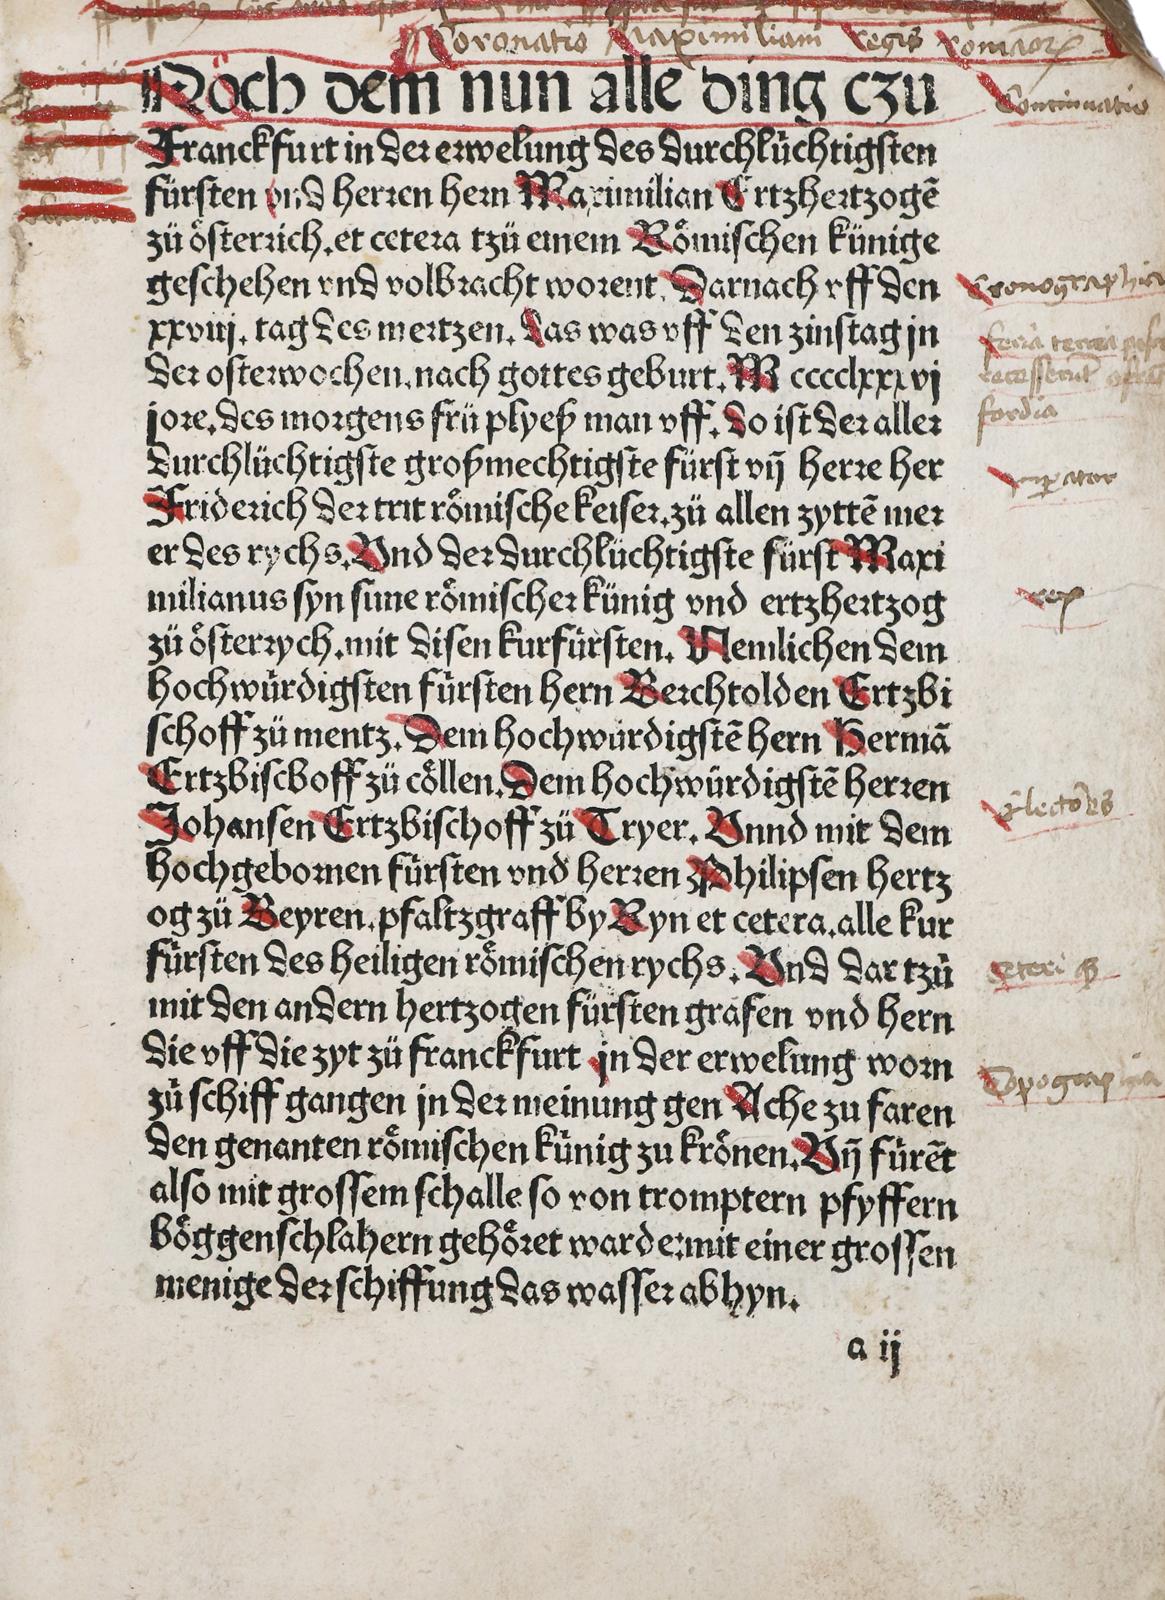 Coronatio Maximiliani regis romanorum
Noͤch dem nun alle ding czu
Continuatio
Franckfurt in der erwelung des durchlüchtigsten
fürsten vnd herren hern Maximilian Ertzhertzogē
zü oͤsterrich. et cetera tzü einem Roͤmischen künige
geschehen vnd volbracht worent. Darnach vff den
Cronographia
xxviij. tag des mertzen. das was vff den zinstag jn
feria tertia
der osterwochen. nach gottes geburt. M cccclxxxvj
jore. des morgens frü plyeß man vff. do ist der aller
durchlüchtigste großmechtigste fürst vn̄ herre her
Friderich der trit roͤmische keiser. zü allen zyttē mer
er des rychs. Vnd der durchlüchtigste fürst Maxi
milianus syn sune roͤmischer künig vnd ertzhertzog
rex
zü oͤsterrych. mit disen kurfürsten. Nemlichen dem
hochwürdigsten fürsten hern Berchtolden Ertzbi
schoff zü mentz. Dem hochwürdigstē hern Hermā
Ertzbischoff zü coͤllen. Dem hochwürdigstē herren
Johansen Ertzbischoff zü Tryer. Vnnd mit dem
Electores
hochgebornen fürsten vnd herren Philipsen hertz
og zü Beyren. pfaltzgraff by Ryn et cetera. alle kur
fürsten des heiligen roͤmischen rychs. Vnd dar tzü
mit den andern hertzogen fürsten grafen vnd hern
die vff die zyt zü franckfurt jn der erwelung worn
Topographia
zü schiff gangen jn der meinung gen Ache zu faren
den genanten roͤmischen künig zu kroͤnen. Vn̄ fürēt
also mit grossem schalle so von tromptern pfyffern
boͤggenschlahern gehoͤret warde. mit einer grossen
menige der schiffung das wasser abhyn.
a ij